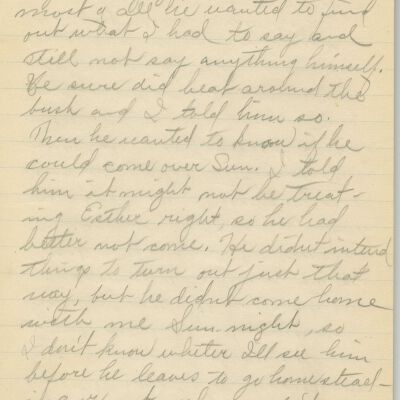 most of all he wanted to find
out what I had to say and
still not say anything himself.
He sure did beat around the
bush and I told him so.
Then he wanted to know if he
could come over Sun. I told
him it might not be treat-
ing Esther right, so he had
better not come. He didnt intend
things to turn out just that
way, but he didnt come home
with me Sun. night, so
I don't know whether I'll see him
before he leaves to go homestead-